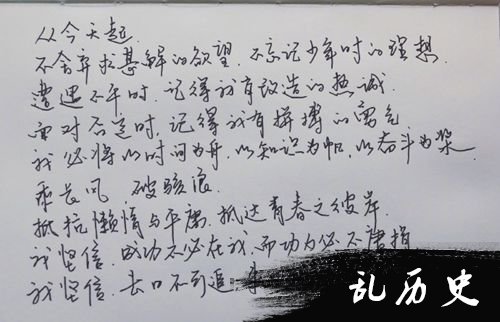 从今天起.
不舍弃求甚解的欲望.不忘记少年时的理想.
遭遇不平时.记得我有改造的热诚.
面对否定时.记得我有拼搏的勇气
我必将以时间为舟,以知识为帆,以奋斗为桨.
乘长风 破骇浪.
抵抗懒惰与平庸.抵达青春之彼岸.
我坚信.成功不必在我,而功力必不唐捐
我坚信.去日不可追.
乱历史